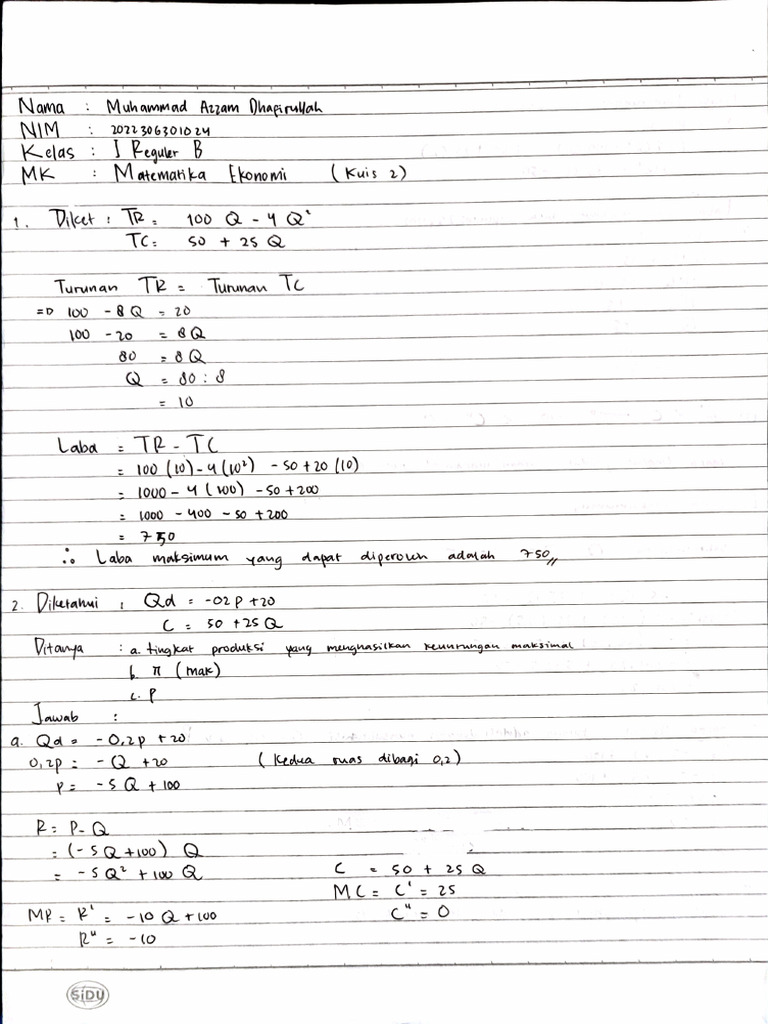 Nama : Muhammad Azzam Dhafirullah
NIM : 2022306301024
Kelas : I Reguler B
MK : Matematika Ekonomi (Kuis 2)
1. Diket : TR = 100 Q - 4 Q²
TC = 50 + 25 Q
Turunan TR = Turunan TC
=D 100 - 8Q = 20
100 - 20 = 8Q
80 = 8Q
Q = 80 : 8
= 10
Laba = TR - TC
= 100 (10) - 4 (10²) - 50 + 20 (10)
= 1000 - 4 (100) - 50 + 200
= 1000 - 400 - 50 + 200
= 750
∴ Laba maksimum yang dapat diperoleh adalah 750,,
2. Diketahui : Qd = -02p + 20
C = 50 + 25 Q
Ditanya : a. tingkat produksi yang menghasilkan keuntungan maksimal
b. π (mak)
c. P
Jawab :
a. Qd = -0,2p + 20
0,2p = -Q + 20 (Kedua ruas dibagi 0,2)
P = -5Q + 100
R = P - Q
= (-5Q + 100) Q
= -5Q² + 100 Q
C = 50 + 25 Q
MC = C' = 25
C" = 0
MR = R' = -10 Q + 100
R" = -10
SiDU